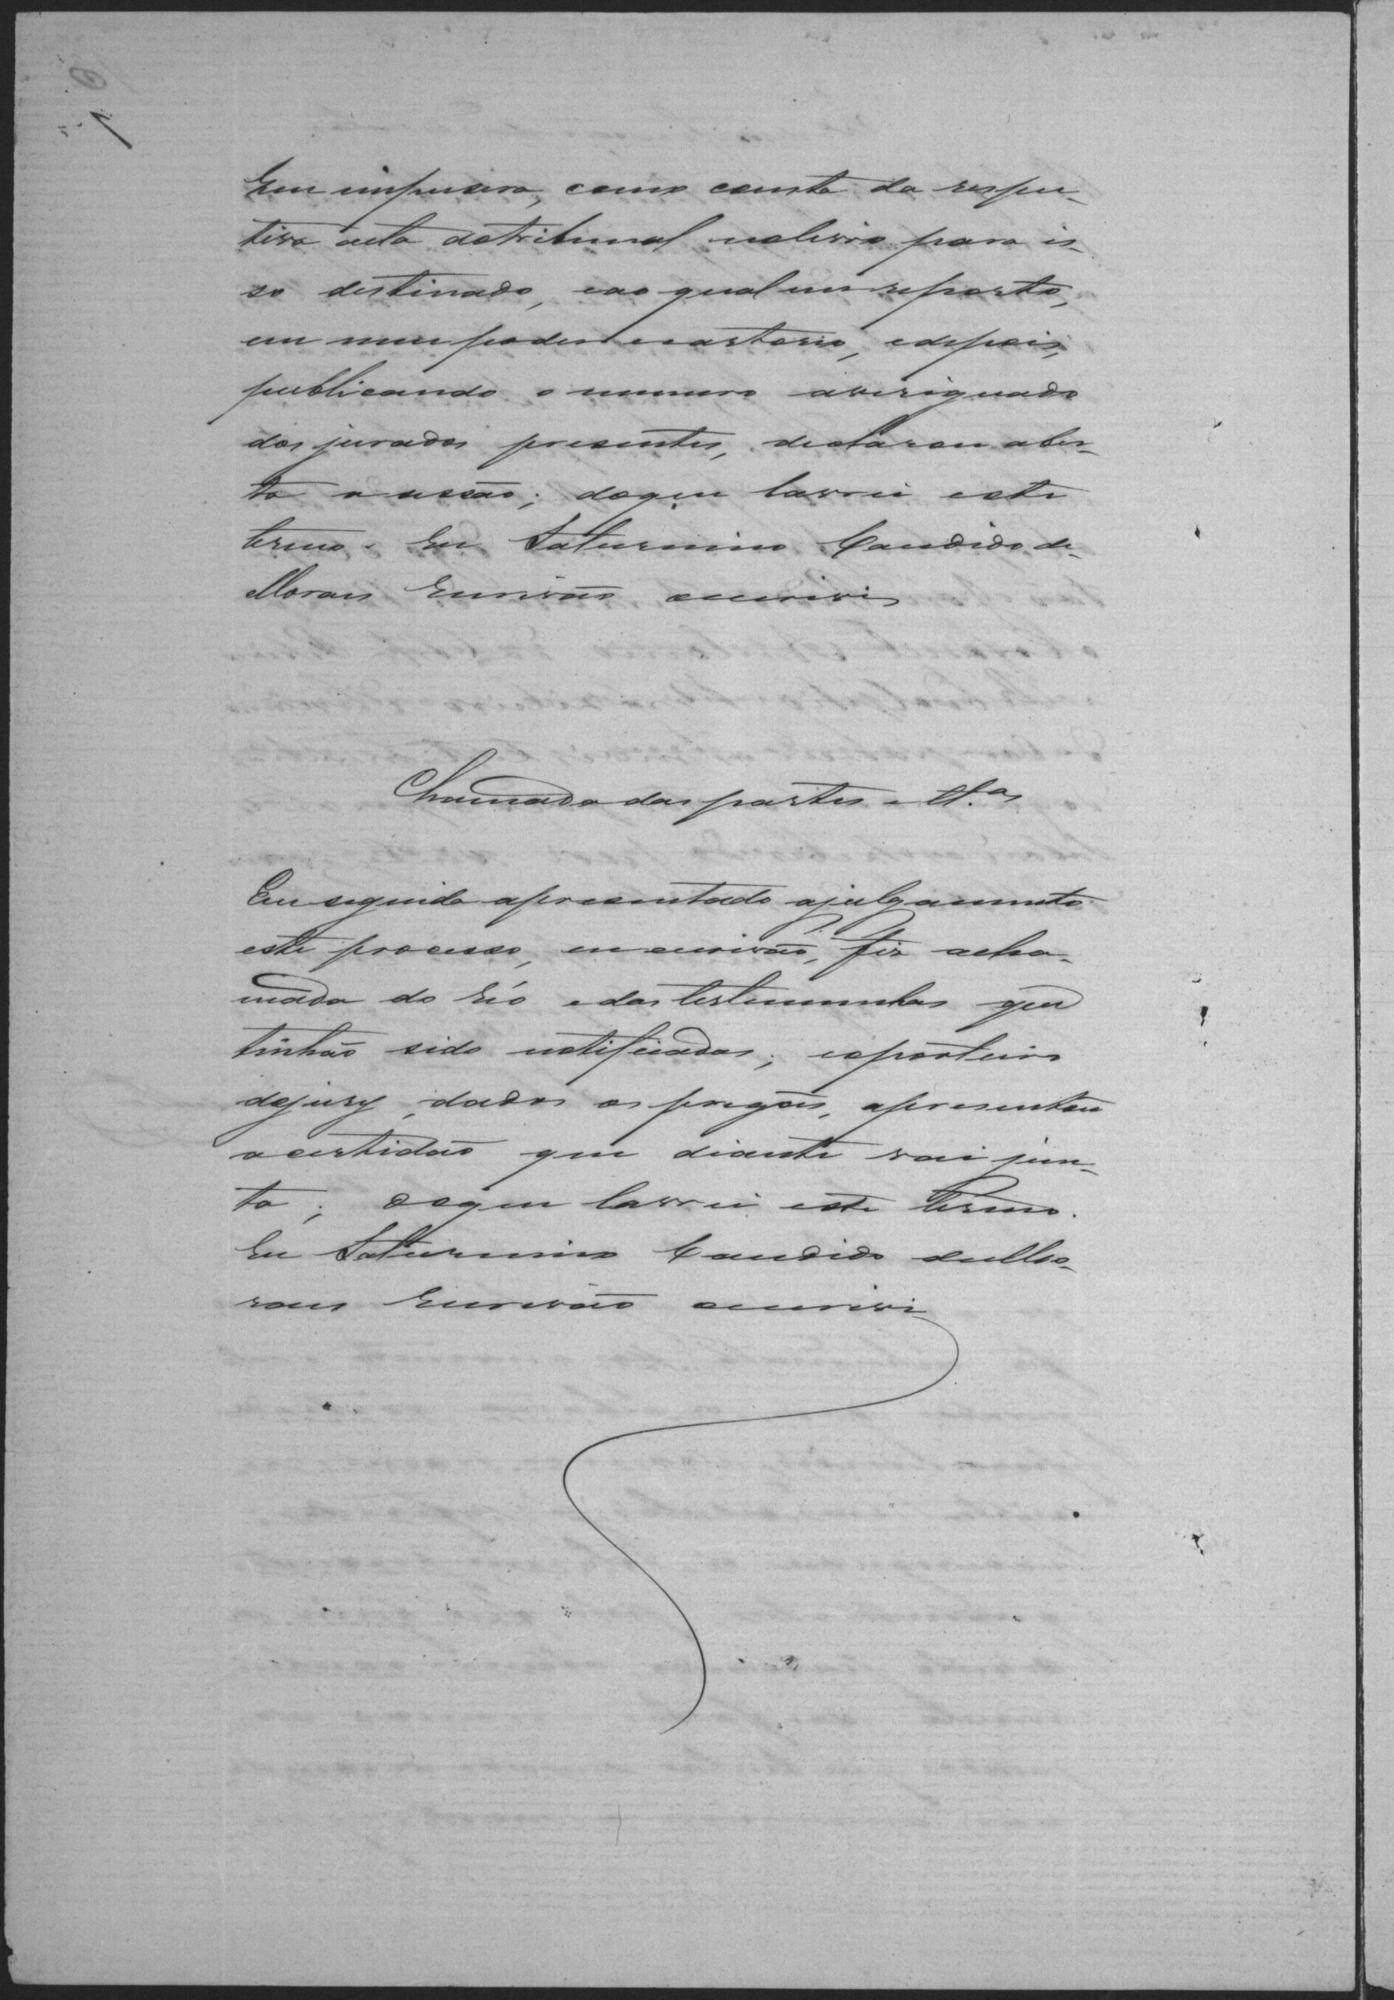 lhes impusera, como consta da respec-
tiva acta do tribunal no livro para is-
so destinado, e ao qual me reporto,
em meu poder e cartorio, e depois,
publicando o numero averiguado
dos jurados presentes, declarou aber-
ta a sessão; do que lavrei este
termo. Eu Saturnino Candido de
Moraes Escrivão escrevi

Chamada das partes e tt.as

Em seguida apresentado a julgamento
este processo, eu escrivão, fiz a cha-
mada do réo e das testemunhas que
tinhão sido notificadas; e o porteiro
do jury, dados os pregões, apresentou
a certidão que diante vai jun-
ta; do que lavrei este termo.
Eu Saturnino Candido de Mo-
raes Escrivão escrevi